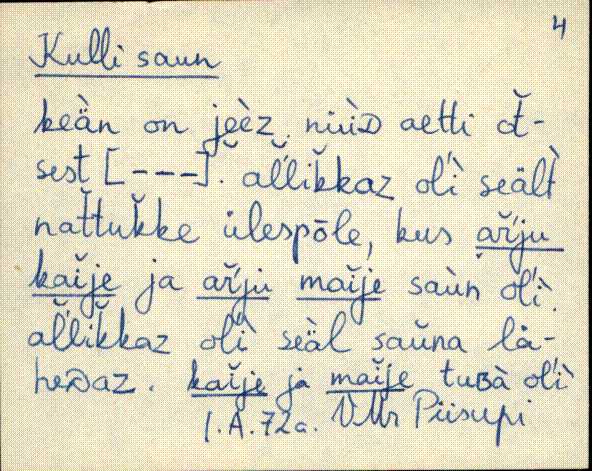 4
Kulli saun
keàn on jeèz. niùD aetti òt̆-
sest [---]. al̆likkaz ol'ì seäl̀t
nat̆tuk̆ke ülespōle, kus ar̆ju
kaĭje ja ar̆ju maĭje saùn ol'ì.
al̆lik̆kaz ol'ì seäl̀ saŭna lä-
heDaz. kaĭje ja maĭje tuʙà ol'ì
I.A.72a. VMr Piisupi